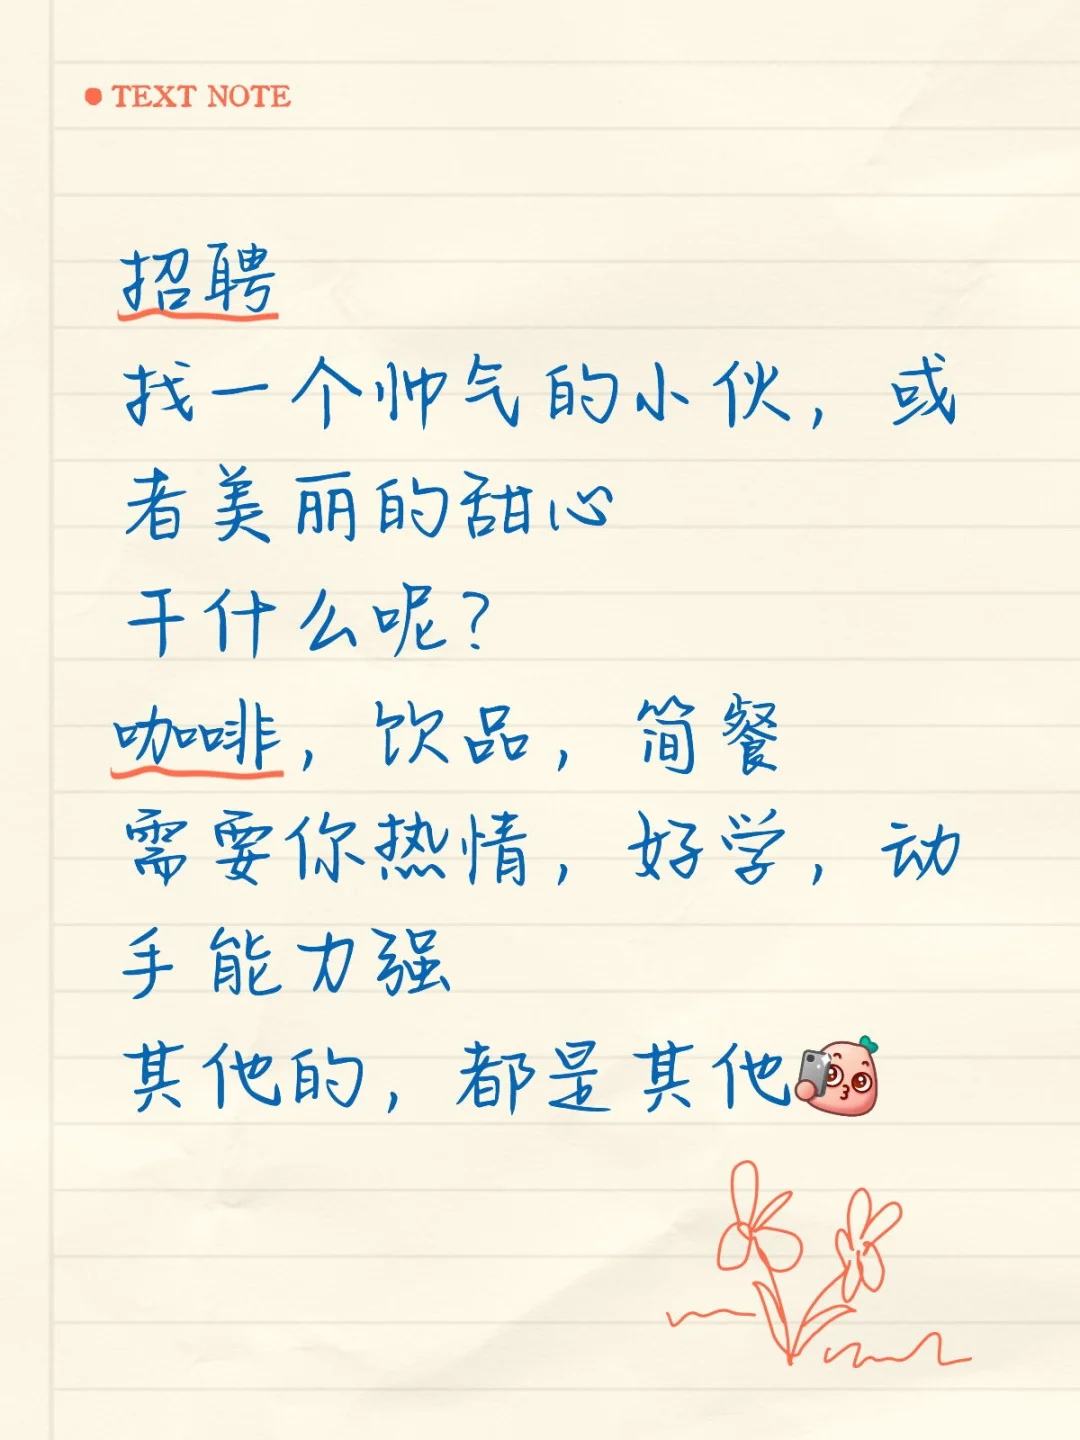 TEXT NOTE
招聘
找一个帅气的小伙，或
者美丽的甜心
干什么呢？
咖啡，饮品，简餐
需要你热情，好学，动
手能力强
其他的，都是其他